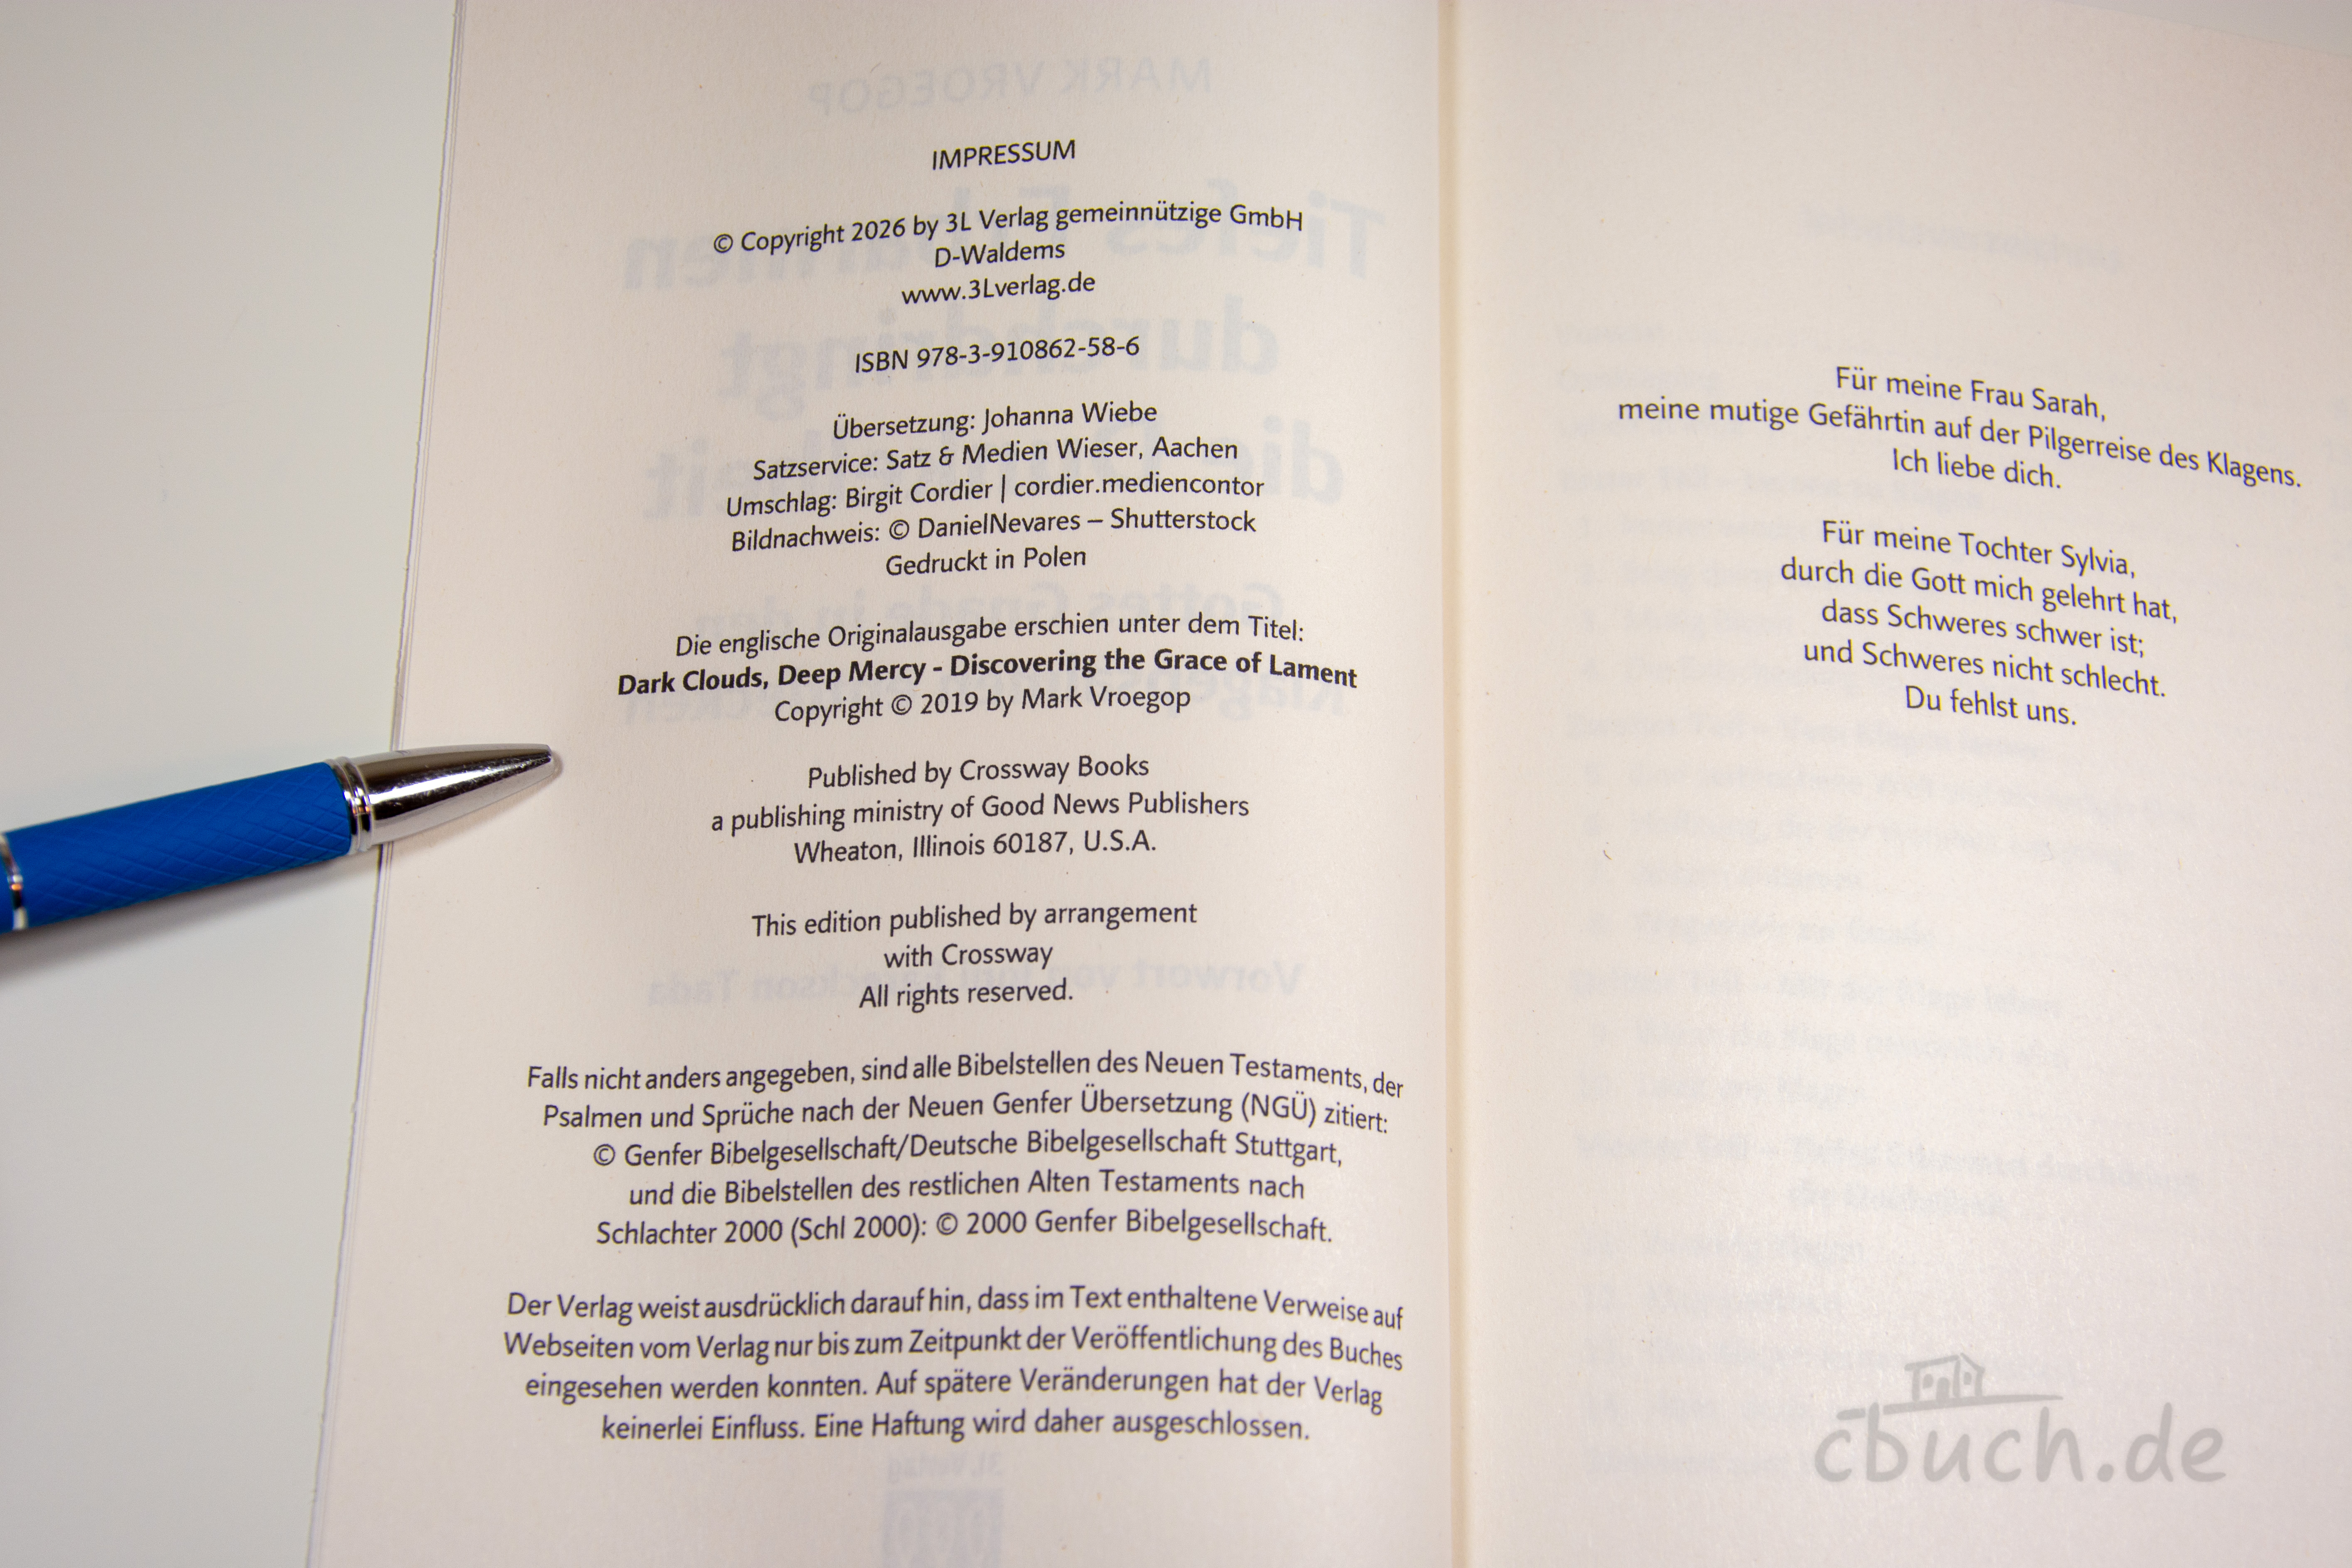 IMPRESSUM
© Copyright 2026 by 3L Verlag gemeinnützige GmbH
D-Waldems
www.3Lverlag.de
ISBN 978-3-910862-58-6
Übersetzung: Johanna Wiebe
Satzservice: Satz & Medien Wieser, Aachen
Umschlag: Birgit Cordier | cordier.mediencontor
Bildnachweis: © DanielNevares – Shutterstock
Gedruckt in Polen
Die englische Originalausgabe erschien unter dem Titel:
Dark Clouds, Deep Mercy - Discovering the Grace of Lament
Copyright © 2019 by Mark Vroegop
Published by Crossway Books
a publishing ministry of Good News Publishers
Wheaton, Illinois 60187, U.S.A.
This edition published by arrangement
with Crossway
All rights reserved.
Falls nicht anders angegeben, sind alle Bibelstellen des Neuen Testaments, der
Psalmen und Sprüche nach der Neuen Genfer Übersetzung (NGÜ) zitiert:
© Genfer Bibelgesellschaft/Deutsche Bibelgesellschaft Stuttgart,
und die Bibelstellen des restlichen Alten Testaments nach
Schlachter 2000 (Schl 2000): © 2000 Genfer Bibelgesellschaft.
Der Verlag weist ausdrücklich darauf hin, dass im Text enthaltene Verweise auf
Webseiten vom Verlag nur bis zum Zeitpunkt der Veröffentlichung des Buches
eingesehen werden konnten. Auf spätere Veränderungen hat der Verlag
keinerlei Einfluss. Eine Haftung wird daher ausgeschlossen.
Für meine Frau Sarah,
meine mutige Gefährtin auf der Pilgerreise des Klagens.
Ich liebe dich.
Für meine Tochter Sylvia,
durch die Gott mich gelehrt hat,
dass Schweres schwer ist;
und Schweres nicht schlecht.
Du fehlst uns.
cbuch.de